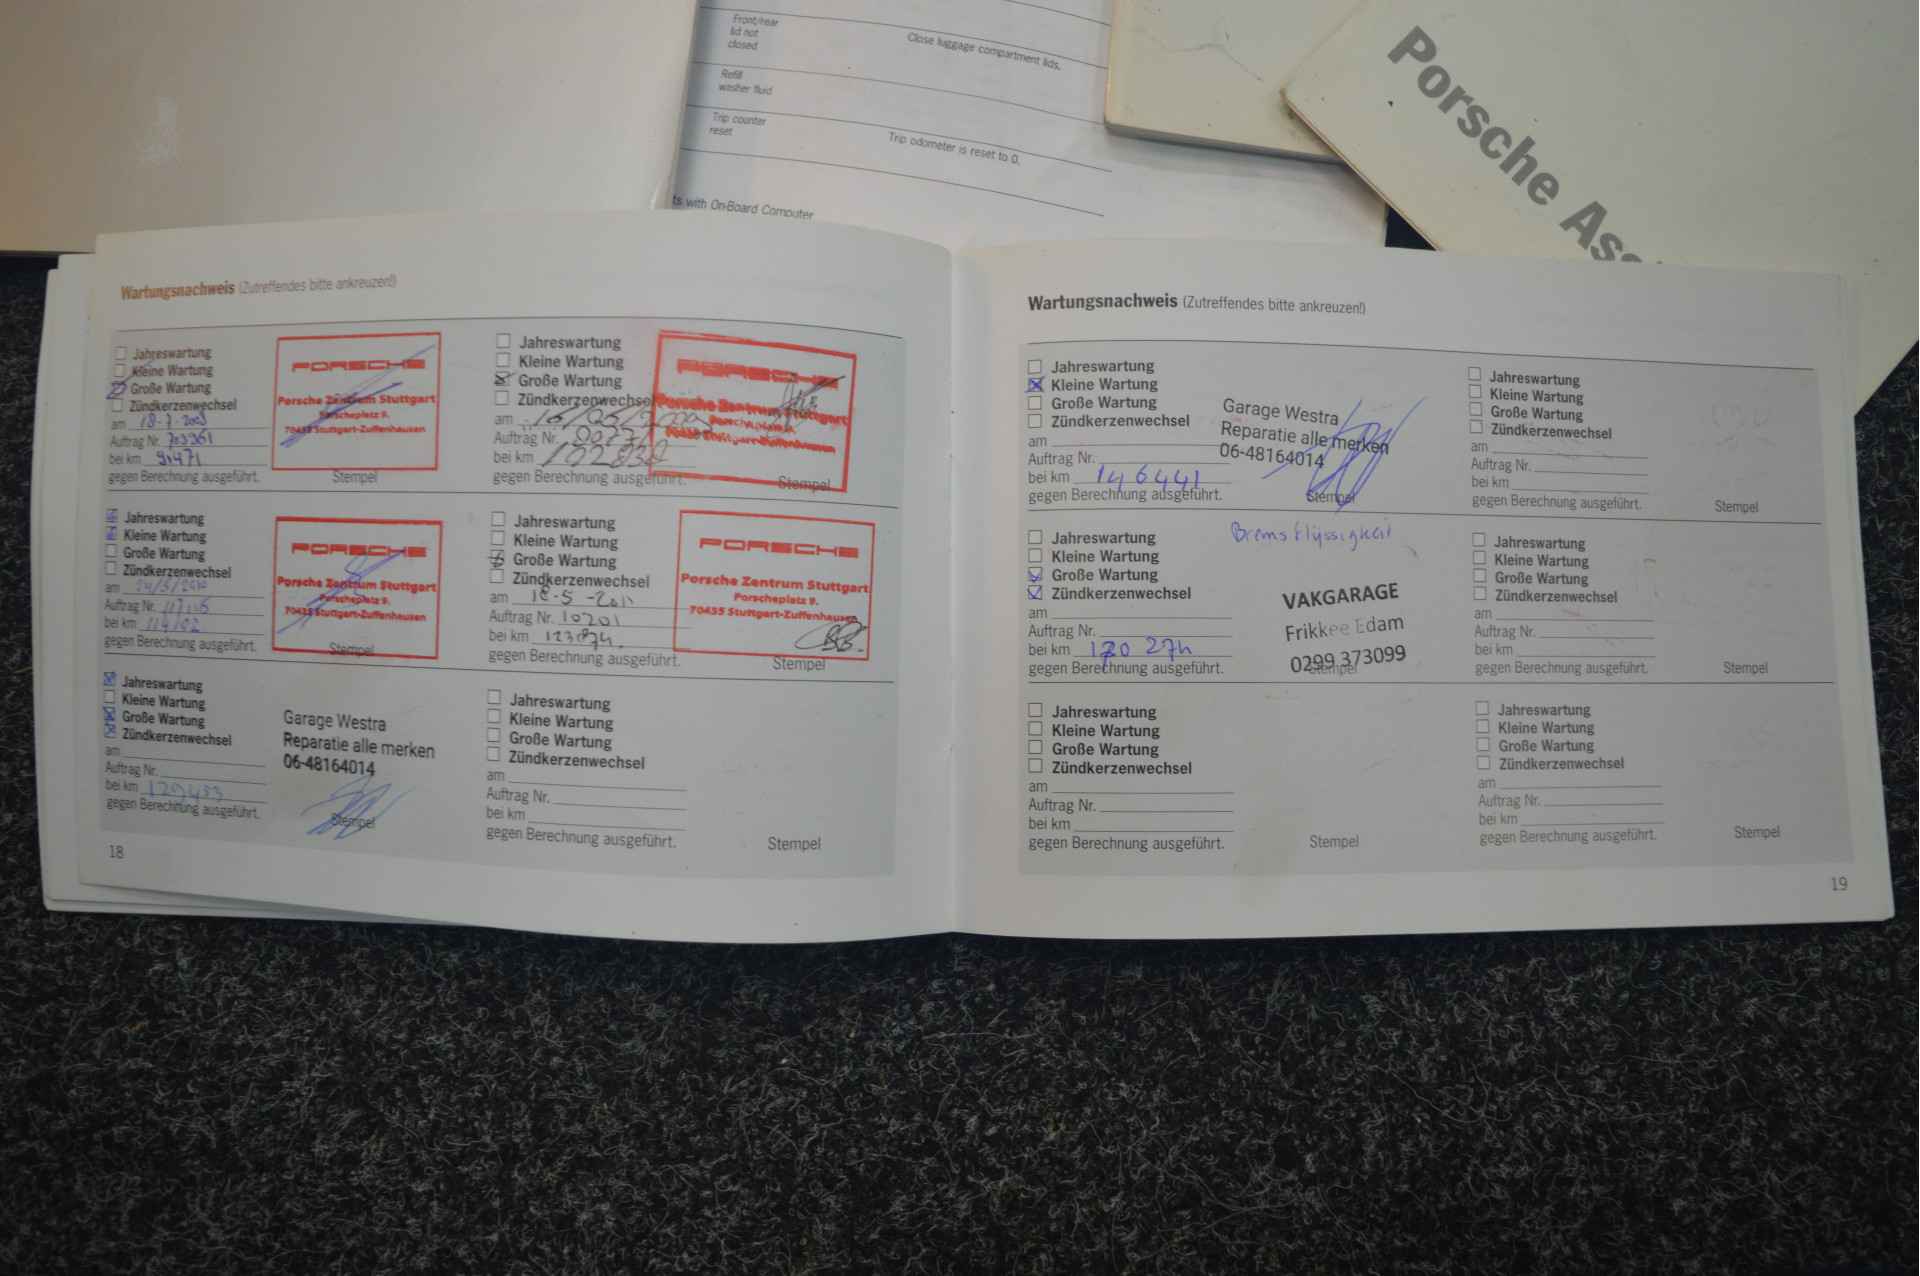 Front/rear
lid not
closed
Close luggage compartment lids.
Refill
washer fluid
Trip counter
reset
Trip odometer is reset to 0.
ts with On-Board Computer
Porsche Ass
Wartungsnachweis (Zutreffendes bitte ankreuzen!)
Jahreswartung
Kleine Wartung
Große Wartung
Zündkerzenwechsel
am 18-7-2003
Auftrag Nr. 703361
bei km 91471
gegen Berechnung ausgeführt.
PORSCHE
Porsche Zentrum Stuttgart
Porscheplatz 9.
70435 Stuttgart-Zuffenhausen
Stempel
Jahreswartung
Kleine Wartung
Große Wartung
Zündkerzenwechsel
am
Auftrag Nr.
bei km
gegen Berechnung ausgeführt.
PORSCHE
Porsche Zentrum Stuttgart
Porscheplatz 9.
70435 Stuttgart-Zuffenhausen
Stempel
Jahreswartung
Kleine Wartung
Große Wartung
Zündkerzenwechsel
am
Auftrag Nr.
bei km
gegen Berechnung ausgeführt.
PORSCHE
Porsche Zentrum Stuttgart
Porscheplatz 9.
70435 Stuttgart-Zuffenhausen
Stempel
Jahreswartung
Kleine Wartung
Große Wartung
Zündkerzenwechsel
am 18-5-2011
Auftrag Nr. 10201
bei km 123874.
gegen Berechnung ausgeführt.
PORSCHE
Porsche Zentrum Stuttgart
Porscheplatz 9.
70435 Stuttgart-Zuffenhausen
Stempel
Jahreswartung
Kleine Wartung
Große Wartung
Zündkerzenwechsel
am
Auftrag Nr.
bei km 129433
gegen Berechnung ausgeführt.
Garage Westra
Reparatie alle merken
06-48164014
Stempel
Jahreswartung
Kleine Wartung
Große Wartung
Zündkerzenwechsel
am
Auftrag Nr.
bei km
gegen Berechnung ausgeführt.
Stempel
18
Wartungsnachweis (Zutreffendes bitte ankreuzen!)
Jahreswartung
Kleine Wartung
Große Wartung
Zündkerzenwechsel
am
Auftrag Nr.
bei km 146441
gegen Berechnung ausgeführt.
Garage Westra
Reparatie alle merken
06-48164014
Stempel
Jahreswartung
Kleine Wartung
Große Wartung
Zündkerzenwechsel
am
Auftrag Nr.
bei km
gegen Berechnung ausgeführt.
Stempel
Jahreswartung
Kleine Wartung
Große Wartung
Zündkerzenwechsel
am
Auftrag Nr.
bei km 170 274
gegen Berechnung ausgeführt.
Bremsflüssigkeit
VAKGARAGE
Frikkee Edam
0299 373099
Stempel
Jahreswartung
Kleine Wartung
Große Wartung
Zündkerzenwechsel
am
Auftrag Nr.
bei km
gegen Berechnung ausgeführt.
Stempel
Jahreswartung
Kleine Wartung
Große Wartung
Zündkerzenwechsel
am
Auftrag Nr.
bei km
gegen Berechnung ausgeführt.
Stempel
Jahreswartung
Kleine Wartung
Große Wartung
Zündkerzenwechsel
am
Auftrag Nr.
bei km
gegen Berechnung ausgeführt.
Stempel
19